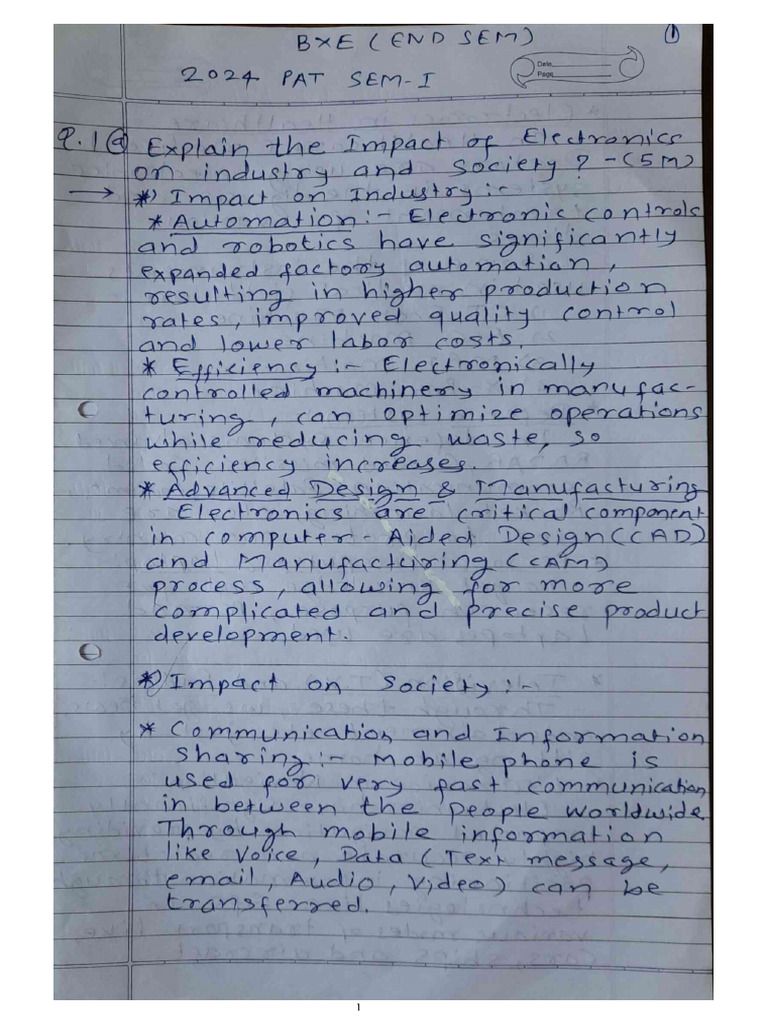 BXE (END SEM)
1
2024 PAT SEM-I
Date
Page
Q.1 a) Explain the Impact of Electronics
on industry and Society? -(5M)
→ *) Impact on Industry :-
* Automation :- Electronic controls
and robotics have significantly
expanded factory automation,
resulting in higher production
rates, improved quality control
and lower labor costs.
* Efficiency :- Electronically
controlled machinery in manufac-
turing, can optimize operations
while reducing waste, so
efficiency increases.
* Advanced Design & Manufacturing
Electronics are critical component
in computer-Aided Design (CAD)
and Manufacturing (CAM)
process, allowing for more
complicated and precise product
development.
*) Impact on Society :-
* Communication and Information
Sharing :- Mobile phone is
used for very fast communication
in between the people worldwide.
Through mobile information
like Voice, Data (Text message,
email, Audio, Video) can be
transferred.
1